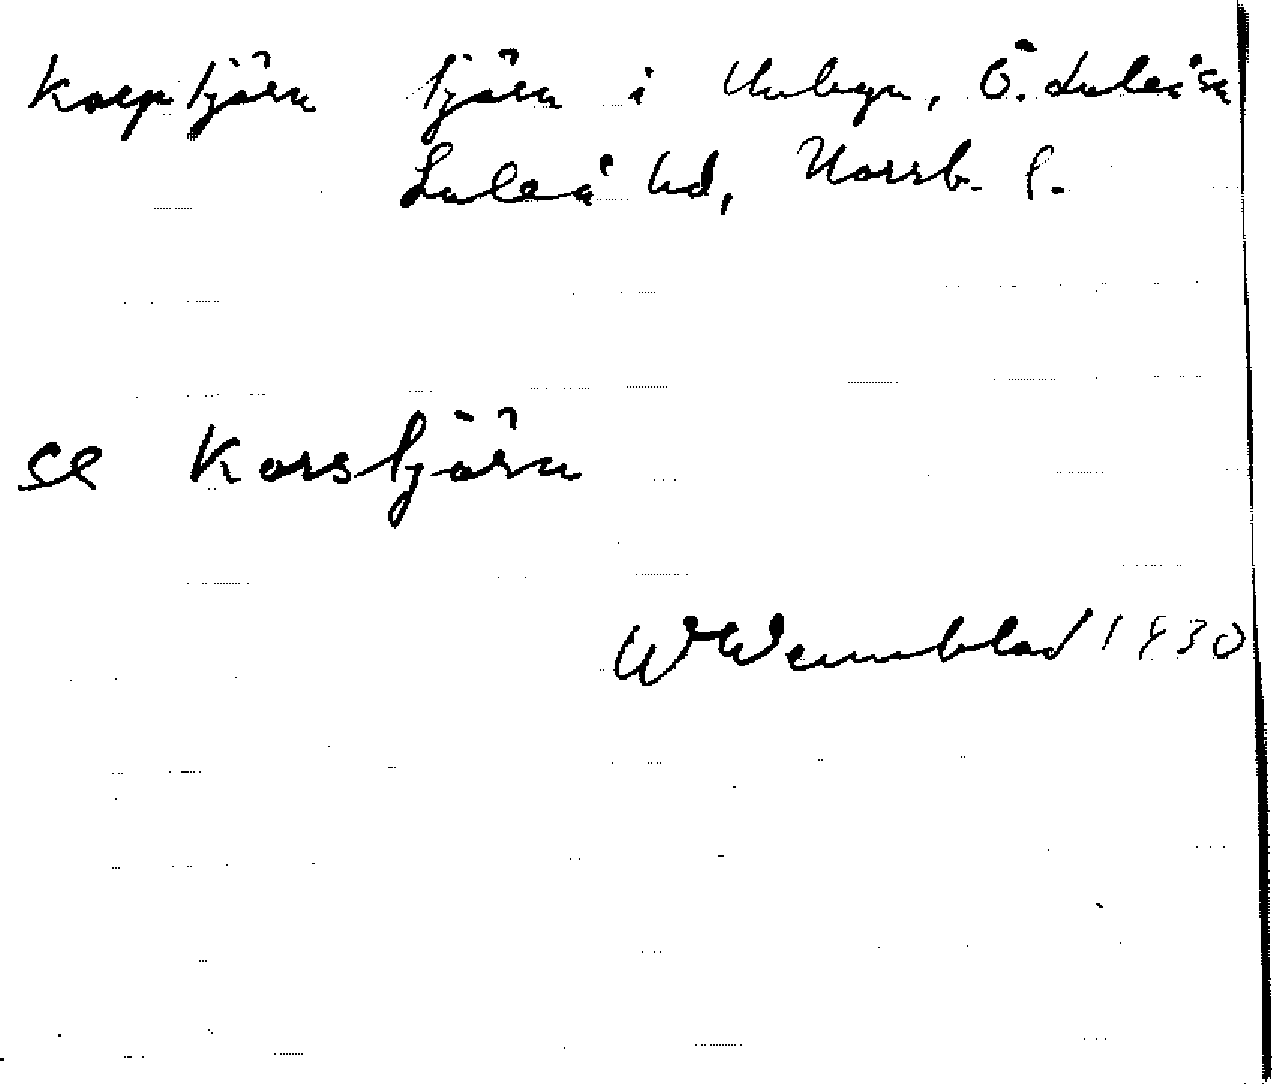 Korptjärn tjärn i Unbyn, Ö. Luleå sn
Luleå hd, Norrb. l.
se Korstjärn
W Wennblad 1930